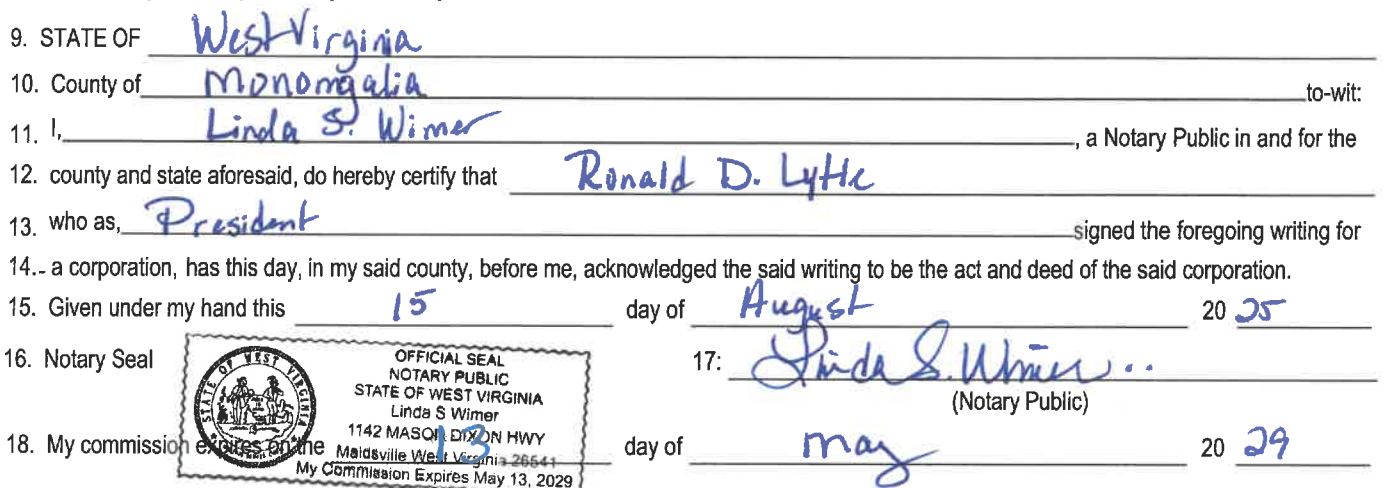 9. STATE OF West Virginia
10. County of Monomgalia to-wit:
11. I, Linda S. Wimer, a Notary Public in and for the
12. county and state aforesaid, do hereby certify that Ronald D. Lytle
13. who as, President signed the foregoing writing for
14.- a corporation, has this day, in my said county, before me, acknowledged the said writing to be the act and deed of the said corporation.
15. Given under my hand this 15 day of August 20 25
16. Notary Seal
STATE OF WEST VIRGINIA
OFFICIAL SEAL
NOTARY PUBLIC
STATE OF WEST VIRGINIA
Linda S Wimer
1142 MASON DIXON HWY
Maidsville West Virginia 26541
My Commission Expires May 13, 2029
17: Linda S. Wimer
(Notary Public)
18. My commission expires on the 13 day of May 20 29